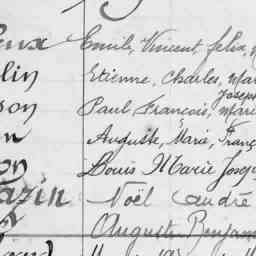 eux Emile, Vincent, felix,
lin Etienne, Charles, Mar
Joseph
son Paul, François, Marie
n Auguste, Marie, Franç
on Louis Marie Josep
azin Noël André
Auguste Benjam